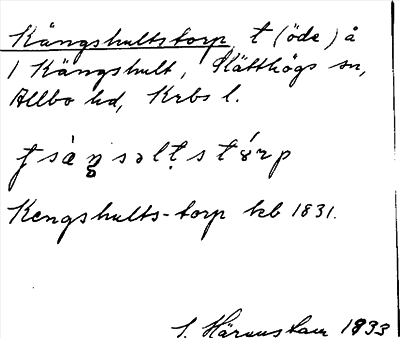 Kängshultstorp, t (öde) å
1 Kängshult, Slätthögs sn,
Allbo hd, Krbs l.
Kengshults-torp hb 1831.
S. Härenstam 1933